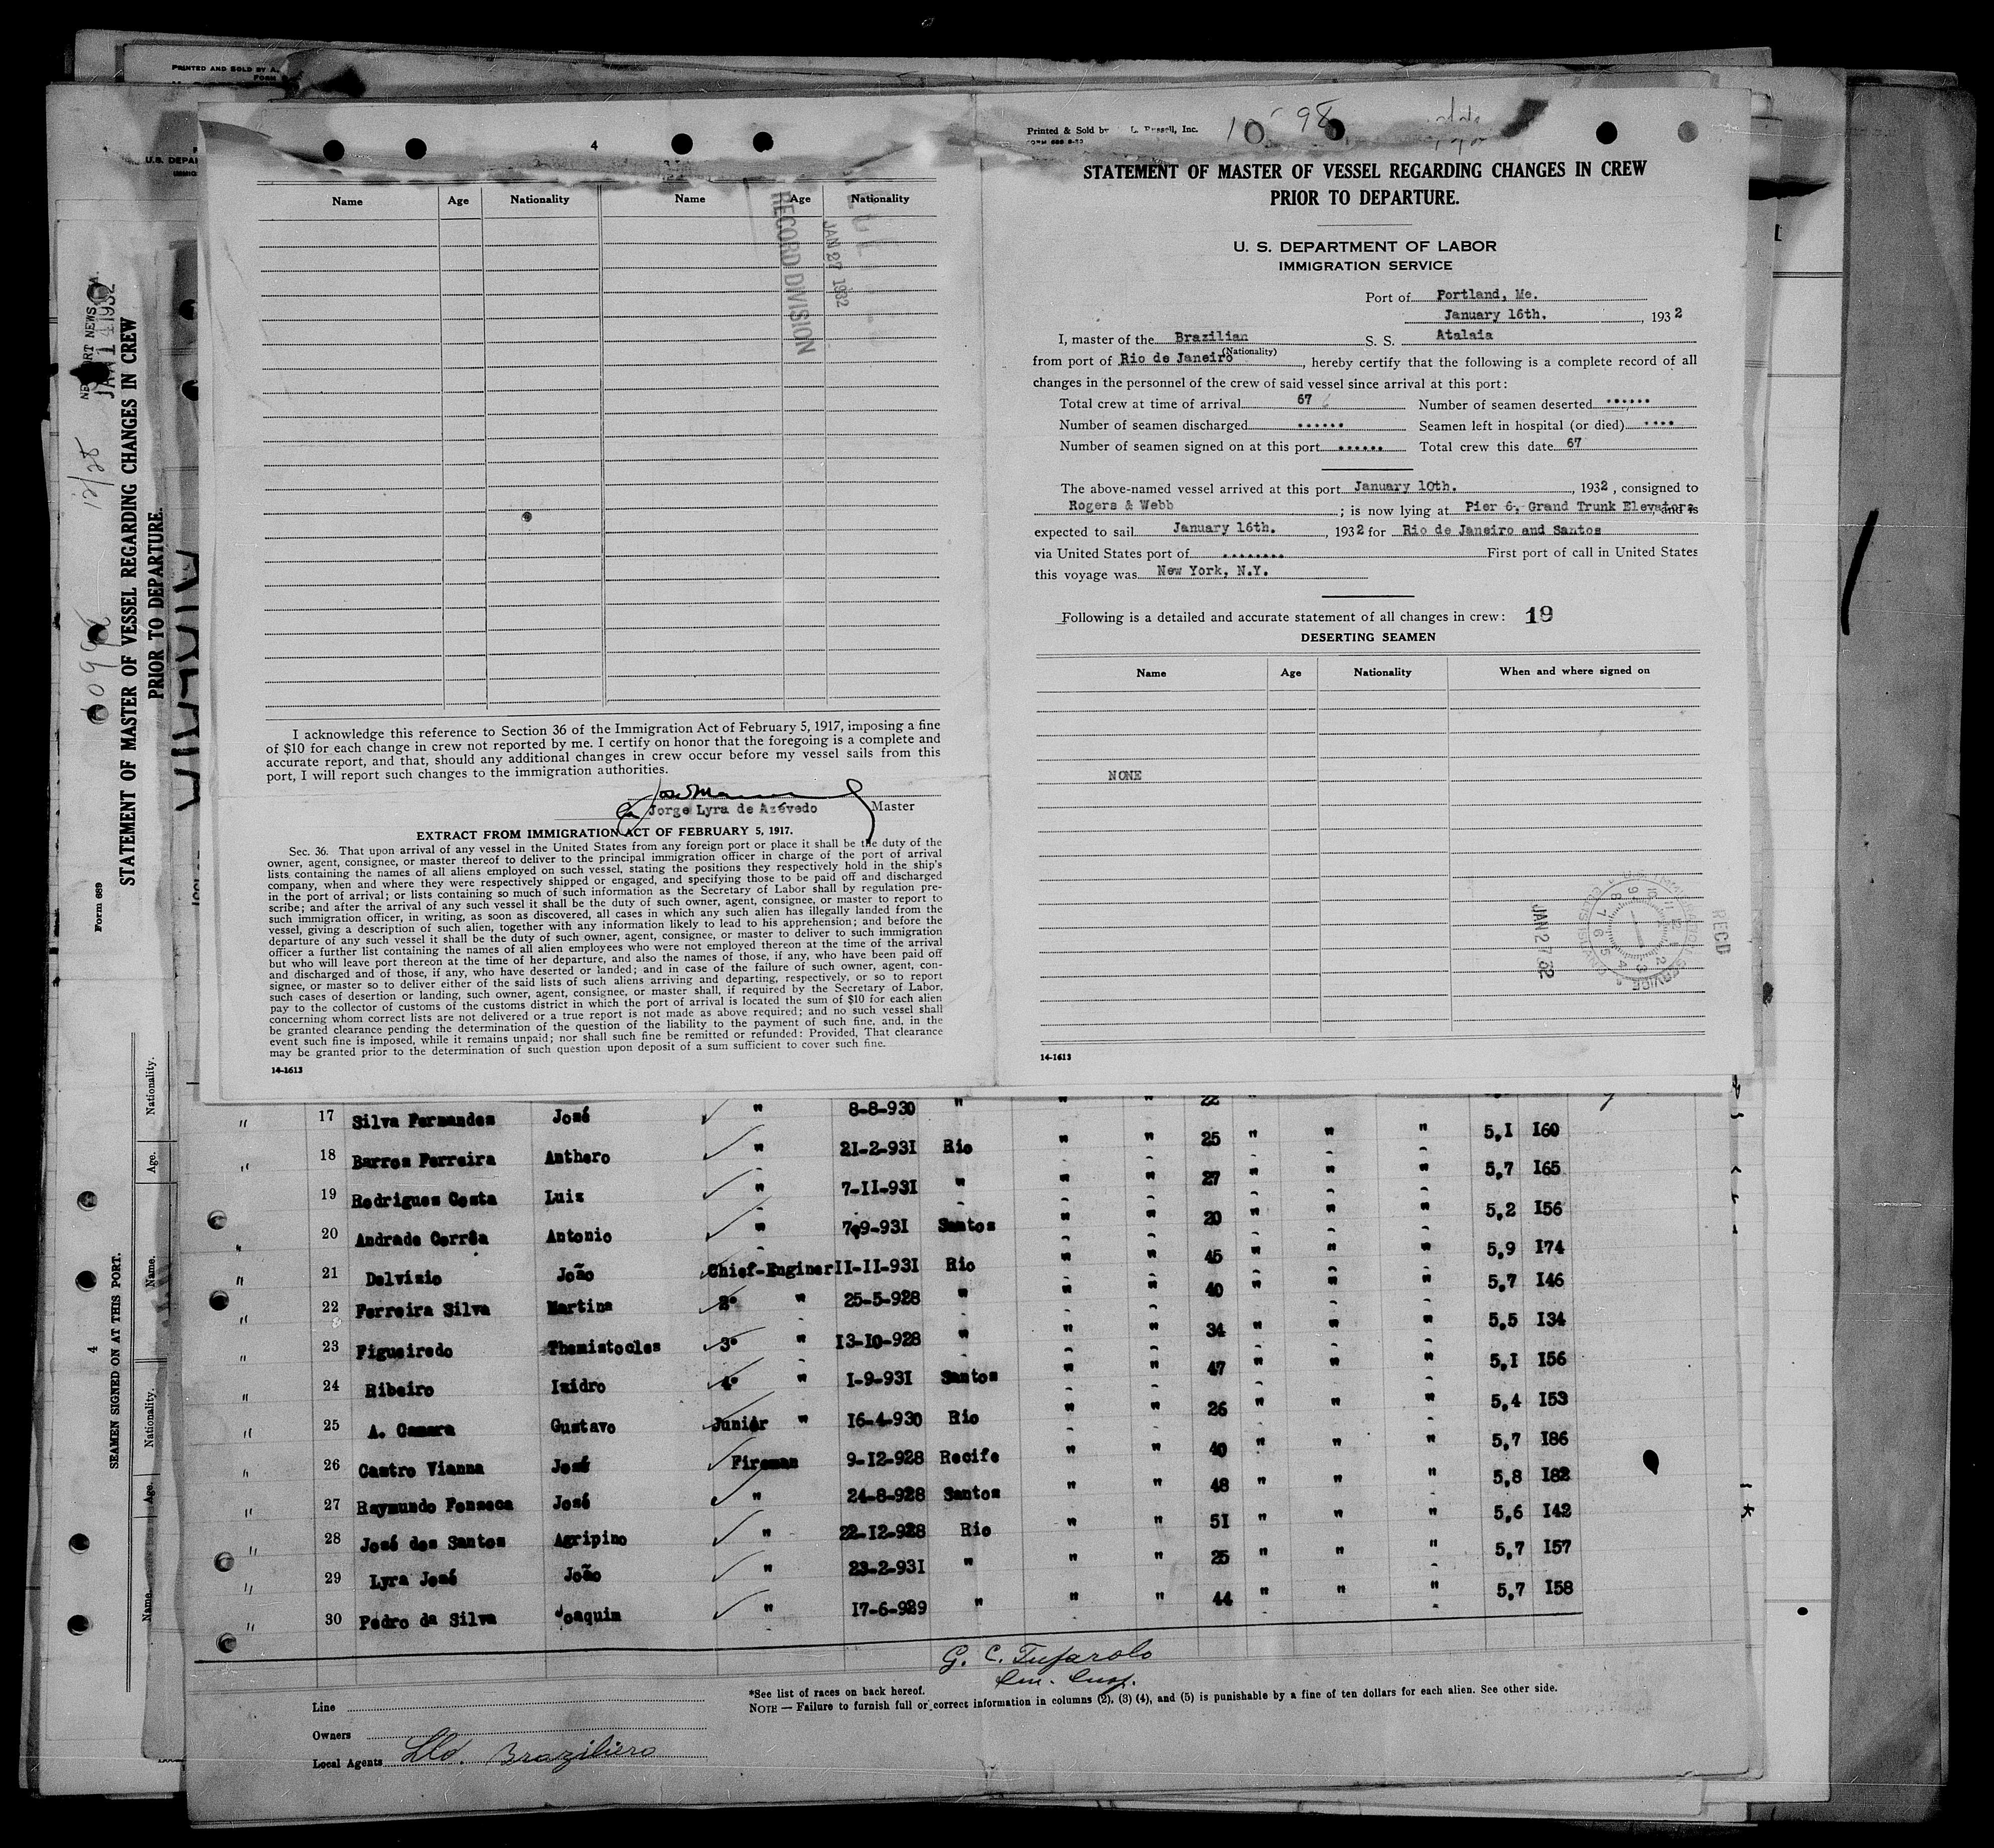 PRINTED AND SOLD BY A.
FORM
U.S. DEPAR
NEWPORT NEWS
JAN 14 1932
STATEMENT OF MASTER OF VESSEL REGARDING CHANGES IN CREW
PRIOR TO DEPARTURE.
12/28
Form 689
ATALAIA
SEAMEN SIGNED ON AT THIS PORT.
4
Name.
Age.
Nationality.
Name.
Age.
Nationality.
4
Name Age Nationality Name Age Nationality
RECORD DIVISION
JAN 27 1932
I acknowledge this reference to Section 36 of the Immigration Act of February 5, 1917, imposing a fine
of $10 for each change in crew not reported by me. I certify on honor that the foregoing is a complete and
accurate report, and that, should any additional changes in crew occur before my vessel sails from this
port, I will report such changes to the immigration authorities.
Jorge Lyra de Azévedo Master
EXTRACT FROM IMMIGRATION ACT OF FEBRUARY 5, 1917.
Sec. 36. That upon arrival of any vessel in the United States from any foreign port or place it shall be the duty of the
owner, agent, consignee, or master thereof to deliver to the principal immigration officer in charge of the port of arrival
lists containing the names of all aliens employed on such vessel, stating the positions they respectively hold in the ship's
company, when and where they were respectively shipped or engaged, and specifying those to be paid off and discharged
in the port of arrival; or lists containing so much of such information as the Secretary of Labor shall by regulation pre-
scribe; and after the arrival of any such vessel it shall be the duty of such owner, agent, consignee, or master to report to
such immigration officer, in writing, as soon as discovered, all cases in which any such alien has illegally landed from the
vessel, giving a description of such alien, together with any information likely to lead to his apprehension; and before the
departure of any such vessel it shall be the duty of such owner, agent, consignee, or master to deliver to such immigration
officer a further list containing the names of all alien employees who were not employed thereon at the time of the arrival
but who will leave port thereon at the time of her departure, and also the names of those, if any, who have been paid off
and discharged and of those, if any, who have deserted or landed; and in case of the failure of such owner, agent, con-
signee, or master so to deliver either of the said lists of such aliens arriving and departing, respectively, or so to report
such cases of desertion or landing, such owner, agent, consignee, or master shall, if required by the Secretary of Labor,
pay to the collector of customs of the customs district in which the port of arrival is located the sum of $10 for each alien
concerning whom correct lists are not delivered or a true report is not made as above required; and no such vessel shall
be granted clearance pending the determination of the question of the liability to the payment of such fine, and, in the
event such fine is imposed, while it remains unpaid; nor shall such fine be remitted or refunded: Provided, That clearance
may be granted prior to the determination of such question upon deposit of a sum sufficient to cover such fine.
14-1613
Printed & Sold by L. Russell, Inc.
STATEMENT OF MASTER OF VESSEL REGARDING CHANGES IN CREW
PRIOR TO DEPARTURE.
U. S. DEPARTMENT OF LABOR
IMMIGRATION SERVICE
Port of Portland, Me.
January 16th. , 1932
I, master of the Brazilian S. S. Atalaia
(Nationality)
from port of Rio de Janeiro , hereby certify that the following is a complete record of all
changes in the personnel of the crew of said vessel since arrival at this port:
Total crew at time of arrival 67 Number of seamen deserted ......
Number of seamen discharged ...... Seamen left in hospital (or died) ....
Number of seamen signed on at this port ...... Total crew this date 67
The above-named vessel arrived at this port January 10th. , 1932 , consigned to
Rogers & Webb ; is now lying at Pier 6, Grand Trunk Elevators, and is
expected to sail January 16th. , 1932 for Rio de Janeiro and Santos
via United States port of ........ First port of call in United States
this voyage was New York, N.Y.
Following is a detailed and accurate statement of all changes in crew: 19
DESERTING SEAMEN
Name Age Nationality When and where signed on
NONE
JAN 27 32
RECD
14-1613
17 Silva Fernandes José " 8-8-930 " " " 22
" 18 Barros Ferreira Anthero " 21-2-931 Rio " " 25 " " " 5,1 160
" 19 Rodrigues Costa Luiz " 7-11-931 " " " 27 " " " 5,7 165
" 20 Andrade Corrêa Antonio " 7-9-931 Santos " " 20 " " " 5,2 156
" 21 Delvizio João Chief-Enginer 11-11-931 Rio " " 45 " " " 5,9 174
" 22 Ferreira Silva Martins 2º " 25-5-928 " " " 40 " " " 5,7 146
" 23 Figueiredo Themistocles 3º " 13-10-928 " " " 34 " " " 5,5 134
" 24 Ribeiro Izidro 4º " 1-9-931 Santos " " 47 " " " 5,1 156
" 25 A. Camara Gustavo Junior " 16-4-930 Rio " " 26 " " " 5,4 153
" 26 Castro Vianna José Fireman 9-12-928 Recife " " 40 " " " 5,7 186
" 27 Raymundo Fonseca José " 24-8-928 Santos " " 48 " " " 5,8 182
" 28 José dos Santos Agripino " 22-12-928 Rio " " 51 " " " 5,6 142
" 29 Lyra José João " 23-2-931 " " " 25 " " " 5,7 157
" 30 Pedro da Silva Joaquim " 17-6-929 " " " 44 " " " 5,7 158
G. C. Tufarolo
Im. Insp.
*See list of races on back hereof.
NOTE — Failure to furnish full or correct information in columns (2), (3) (4), and (5) is punishable by a fine of ten dollars for each alien. See other side.
Line
Owners
Local Agents Lld. Braziliero